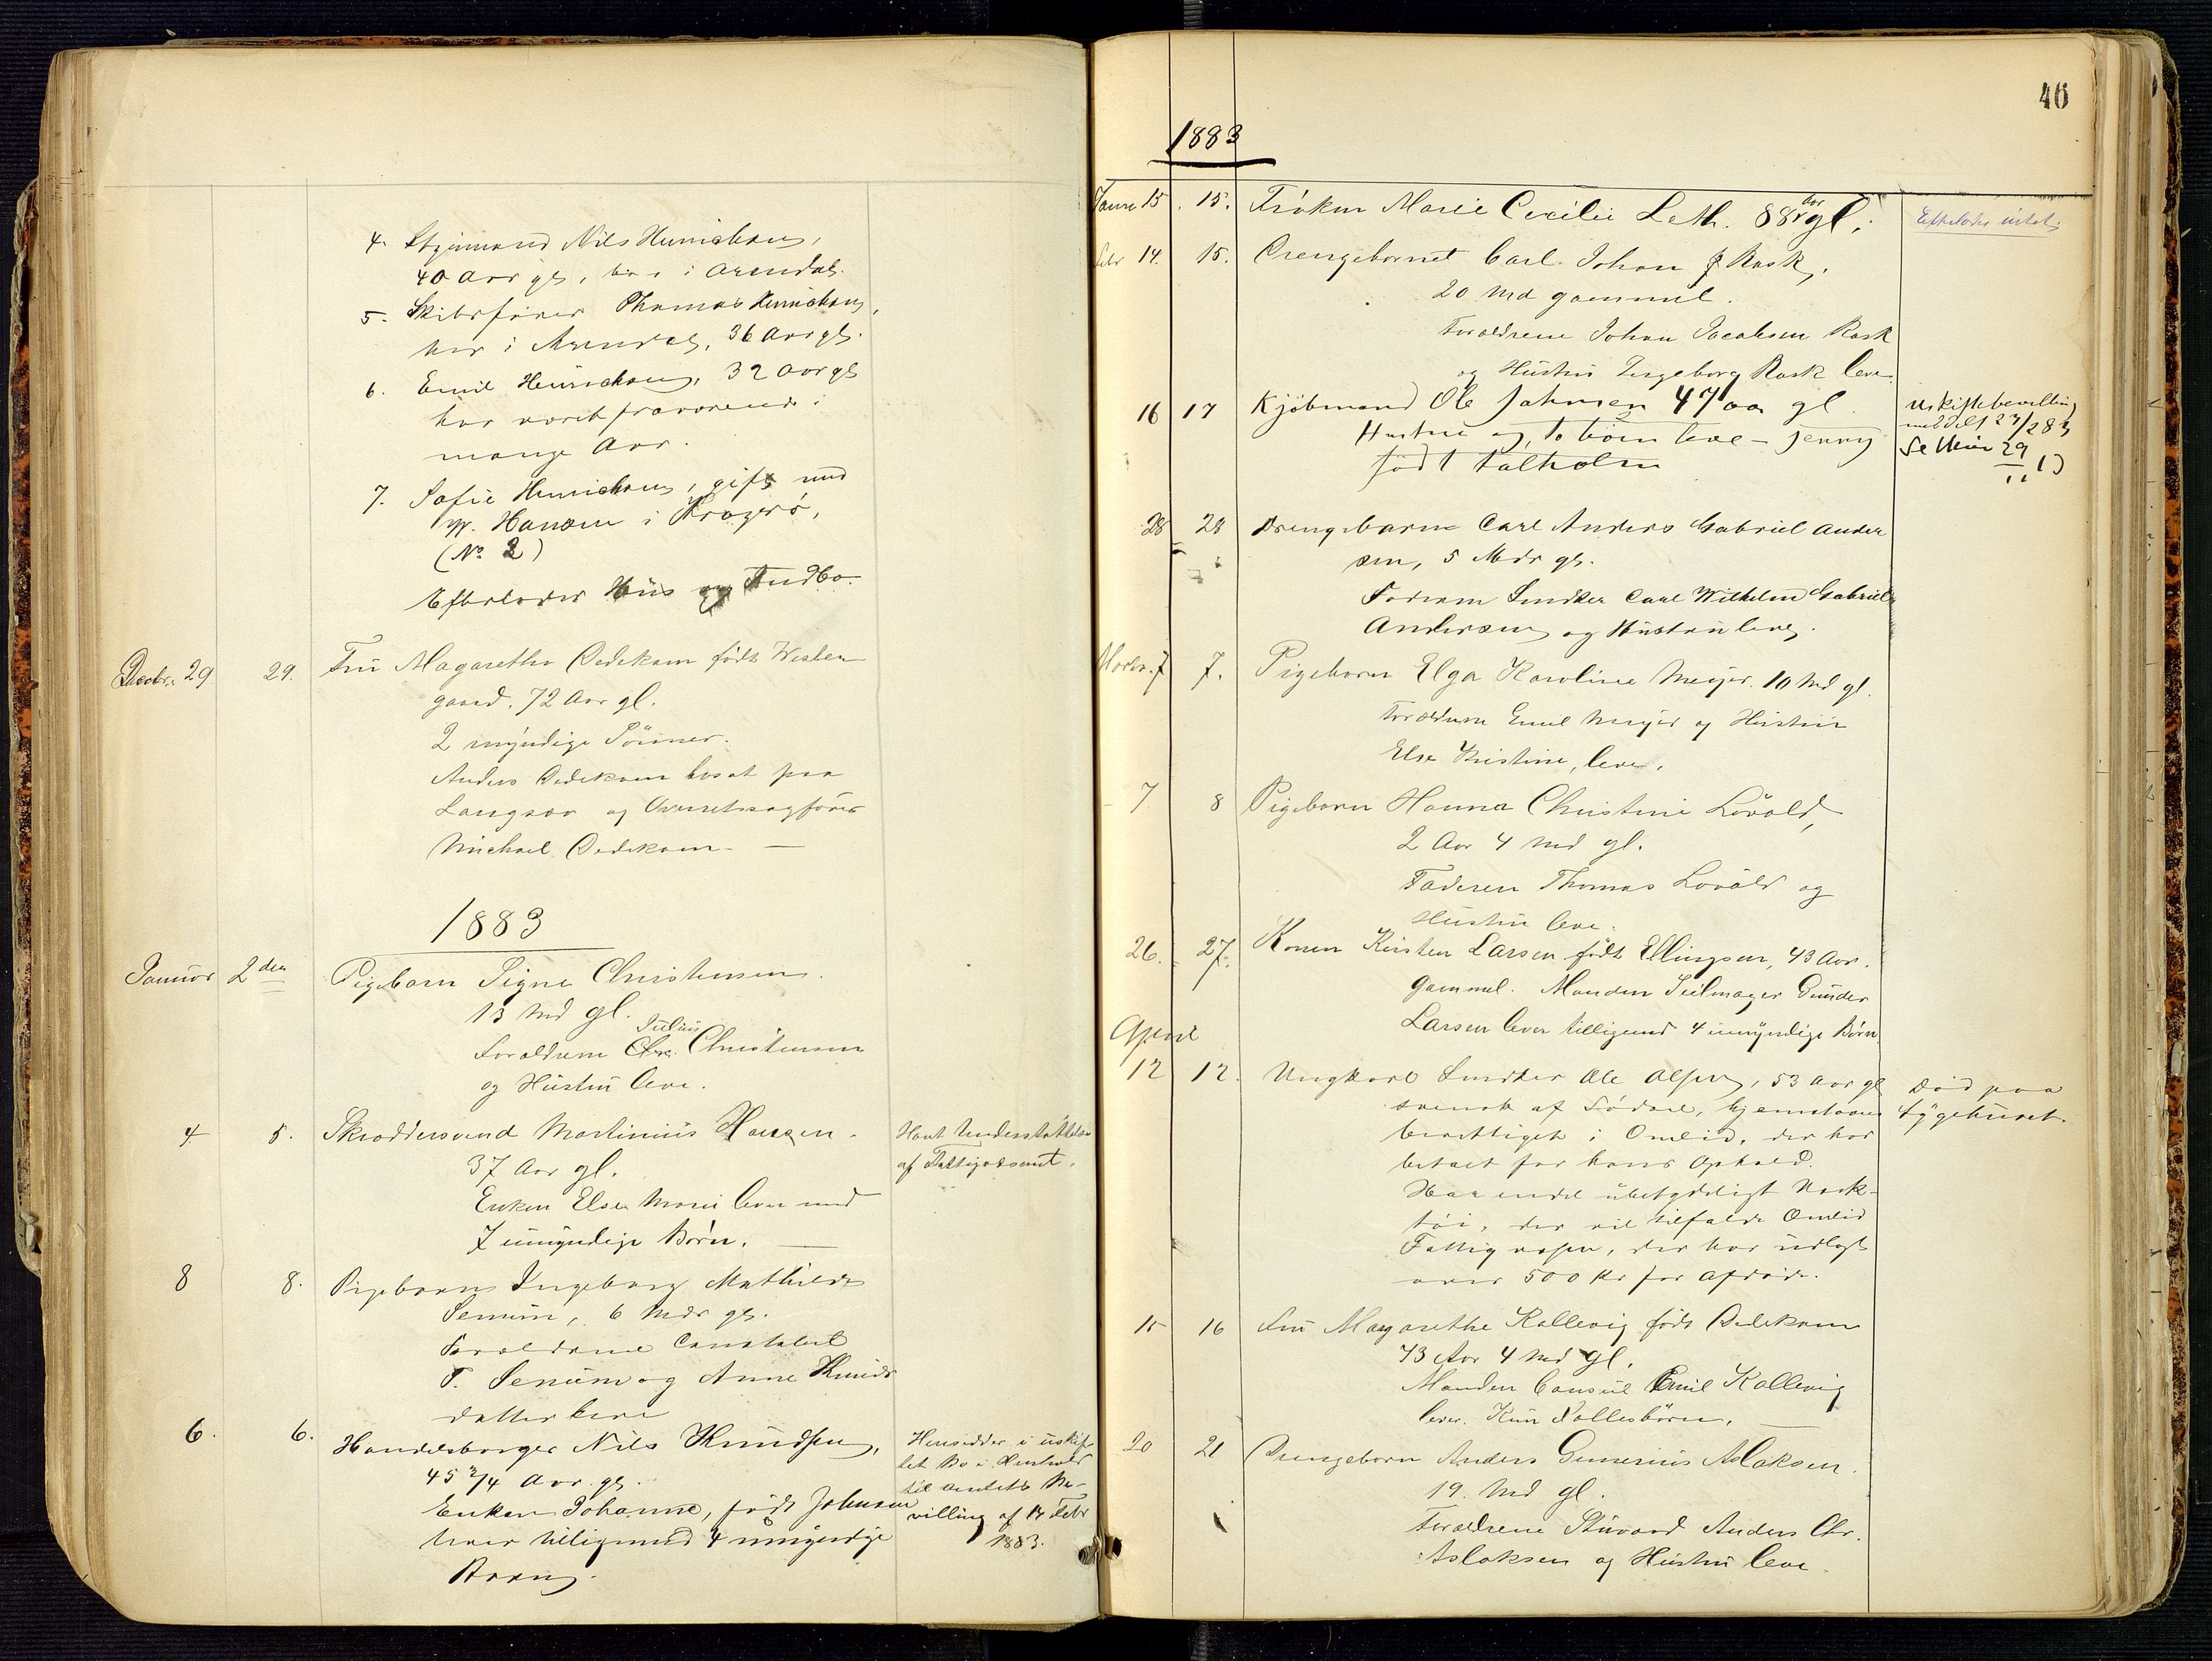 4. Styrmand Nils Henrichsen,
40 Aar gl, bor i Arendal.
5. Skibsfører Thomas Henrichsen,
bor i Arendal, 36 Aar gl.
6. Emil Henrichsen, 32 Aar gl
har været fraværende i
mange Aar.
7. Sofie Henrichsen, gift med
Hansen i Kragerø,
(No 2)
Efterlader Hus og Indbo.
Decbr. 29 29. Fru Magarethe Dedekam født Westen
gaard. 72 Aar gl.
2 myndige Sönner.
Anders Dedekam bosat paa
Langsæ og Overretssagfører
Michael Dedekam —
1883
Januar 2den Pigebarn Signe Christensen.
13 Md gl.
Julius
Forældrene Chr. Christensen
og Hustru leve.
4 5. Skræddersvend Martinius Hansen.
37 Aar gl.
Enken Else Marie lever med
7 umyndige Børn. —
Havt Understøttelse
af Fattigvæsenet.
8 8. Pigebarn Ingeborg Mathilde
Senum, 6 Mdr gl.
Forældrene Constabel
T. Senum og Anne Knuds
datter leve
6. 6. Handelsborger Nils Knudsen,
45 3/4 Aar gl.
Enken Johanne, født Johnsen
lever tilligemed 4 umyndige
Børn.
Hensidder i uskif
tet Bo i Henhold
til Amtets Be-
villing af 14 Febr
1883.
46
1883
Januar 15. 15. Frøken Marie Cecilie Leth. 88 Aar gl.
Efterlader intet.
Febr 14. 15. Drengebarnet Carl Johan Rask,
20 Md gammel.
Forældrene Johan Jacobsen Rask
og Hustru Ingeborg Rask leve.
16 17 Kjöbmand Ole Johnsen 47 aar gl
Hustru og to börn leve - Jenny
født Falholm
Uskiftebevilling
meddelt
28 28 Drengebarn Carl Anders Gabriel Ander
sen, 5 Mdr gl.
Faderen Snedker Carl Wilhelm Gabriel
Andersen og Hustru leve.
Marts. 7 7. Pigebarn Elga Karoline Meyer. 10 Md gl.
Forældrene Emil Meyer og Hustru
Else Kristine, leve.
7 8 Pigebarn Hanna Christine Lövold,
2 Aar 4 Md gl.
Faderen Thomas Lovold og
Hustru leve.
26. 27. Konen Kirsten Larsen født Ellingsen, 43 Aar.
gammel. Manden Seilmager Gunder
Larsen lever tilligemed 4 umyndige Børn
April
12 12. Ungkarl Snedker Ole Olsen, 53 Aar gl
svensk af Fødsel, hjemstavns
berettiget i Omlid, der har
betalt for hans Ophold.
Har endel ubetydeligt Værk-
tøi, der vil tilfalde Omlid
Fattigvæsen, der har udlagt
over 500 Kr for Afdøde.
Død paa
Sygehuset.
15 16 Fru Magarethe Kallevig født Dedekam
73 Aar 4 Md gl.
Manden Consul Emil Kallevig
lever. Kun Fællesbörn. —
20 21 Drengebarn Anders Gunerius Aslaksen.
19. Md gl.
Forældrene Stuvard Anders Chr.
Aslaksen og Hustru leve.